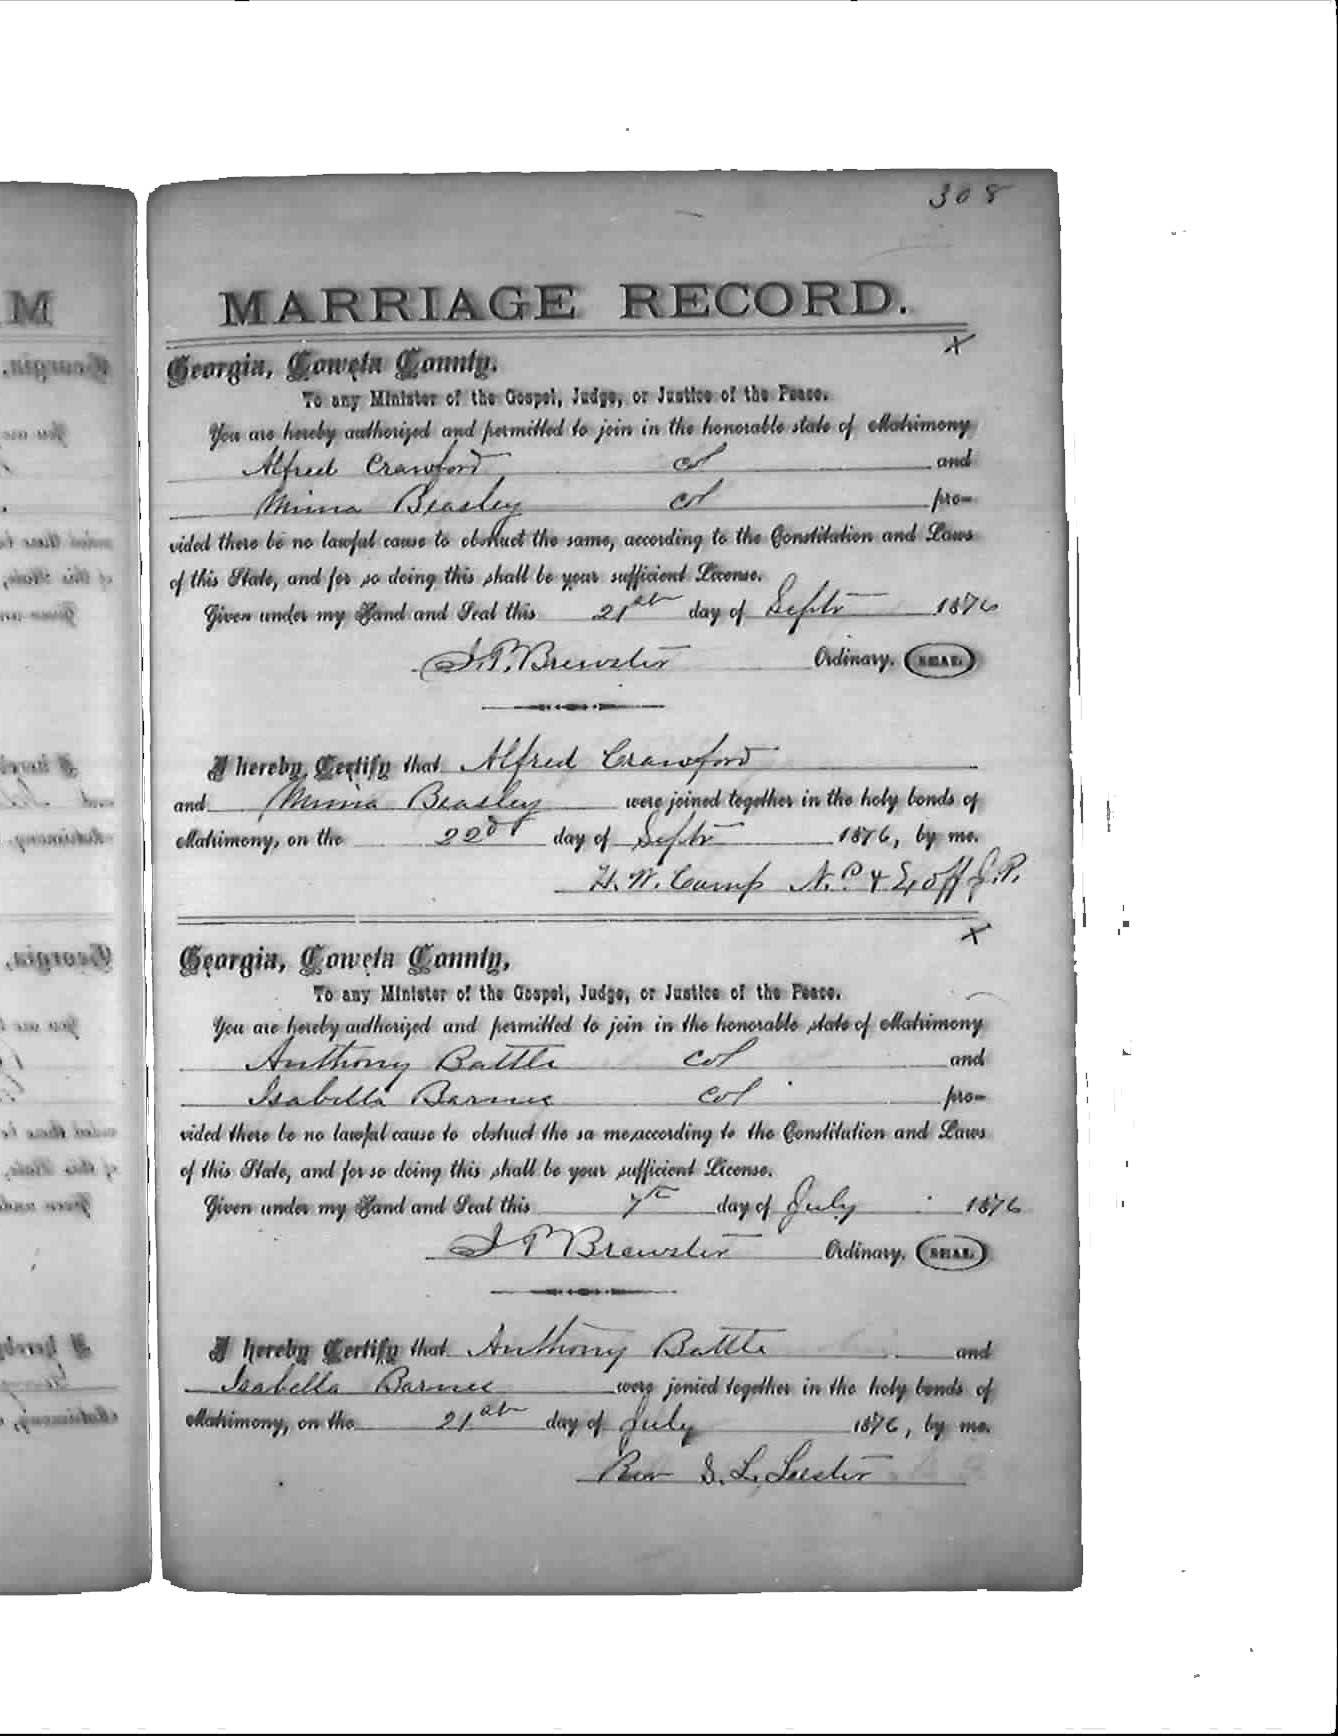 308
MARRIAGE RECORD.
Georgia, Coweta County.
To any Minister of the Gospel, Judge, or Justice of the Peace.
You are hereby authorized and permitted to join in the honorable state of Matrimony
Alfred Crawford col and
Mima Beasley col pro-
vided there be no lawful cause to obstruct the same, according to the Constitution and Laws
of this State, and for so doing this shall be your sufficient License.
Given under my Hand and Seal this 21st day of Septr 1876
J.P. Brewster Ordinary. SEAL.
I hereby Certify that Alfred Crawford
and Mima Beasley were joined together in the holy bonds of
Matrimony, on the 22d day of Septr 1876, by me.
H. W. Camp N.P & Ex off J.P.
Georgia, Coweta County,
To any Minister of the Gospel, Judge, or Justice of the Peace.
You are hereby authorized and permitted to join in the honorable state of Matrimony
Anthony Battle col and
Isabella Barnes col pro-
vided there be no lawful cause to obstruct the sa me,according to the Constitution and Laws
of this State, and for so doing this shall be your sufficient License.
Given under my Hand and Seal this 7th day of July 1876
J P Brewster Ordinary. SEAL.
I hereby Certify that Anthony Battle and
Isabella Barnes were jonied together in the holy bonds of
Matrimony, on the 21st day of July 1876, by me.
Rev S. L. Lester